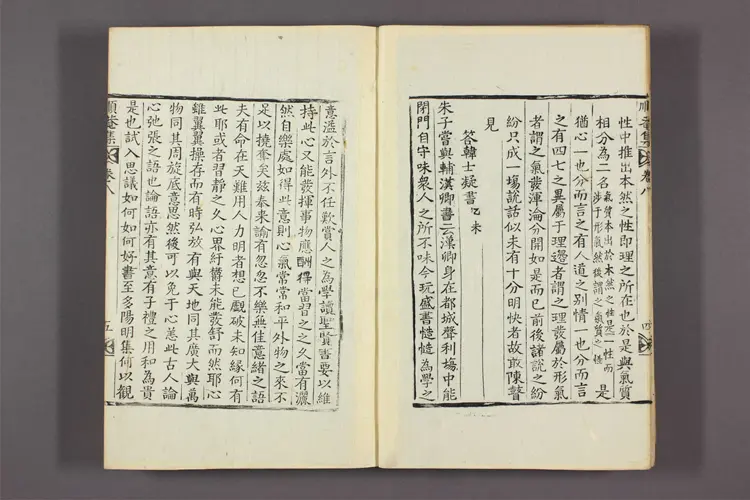 性中推出本然之性即理之所在也於是與氣質
相分為二名氣質本出於本然之性是一性而涉于形氣然後謂之氣質之性是
猶心一也分而言之有人道之別情一也分而言
之有四七之異屬于理邊者謂之理發屬於形氣
者謂之氣發渾淪分開如是而已前後諸說之紛
紛只成一塲說話似未有十分明快者故敢陳瞽
見
答韓士凝書乙未
朱子嘗與輔漢卿書云漢卿身在都城聲利塲中能
閉門自守味衆人之所不味今玩盛書慥慥為學之
順菴集 卷八 四
意溢於言外不任歎賞人之為學讀聖賢書要以維
持此心又能發揮事物應酬得當習之之久當有灑
然自樂處如得此意則心氣常常和平外物之來不
足以撓奪矣玆奉來諭有忽忽不樂無佳意緒之語
夫有命在天難用人力明者想已覷破未知緣何有
此耶或者習靜之久心界紆欝未能發舒而然耶心
雖翼翼操存而有時弘放有與天地同其廣大與萬
物同其周旋底意思然後可以免于心恙此古人論
心弛張之語也論語亦有其意有子禮之用和為貴
是也試入思議如何如何好書至多陽明集何以觀
順菴集 卷八 五